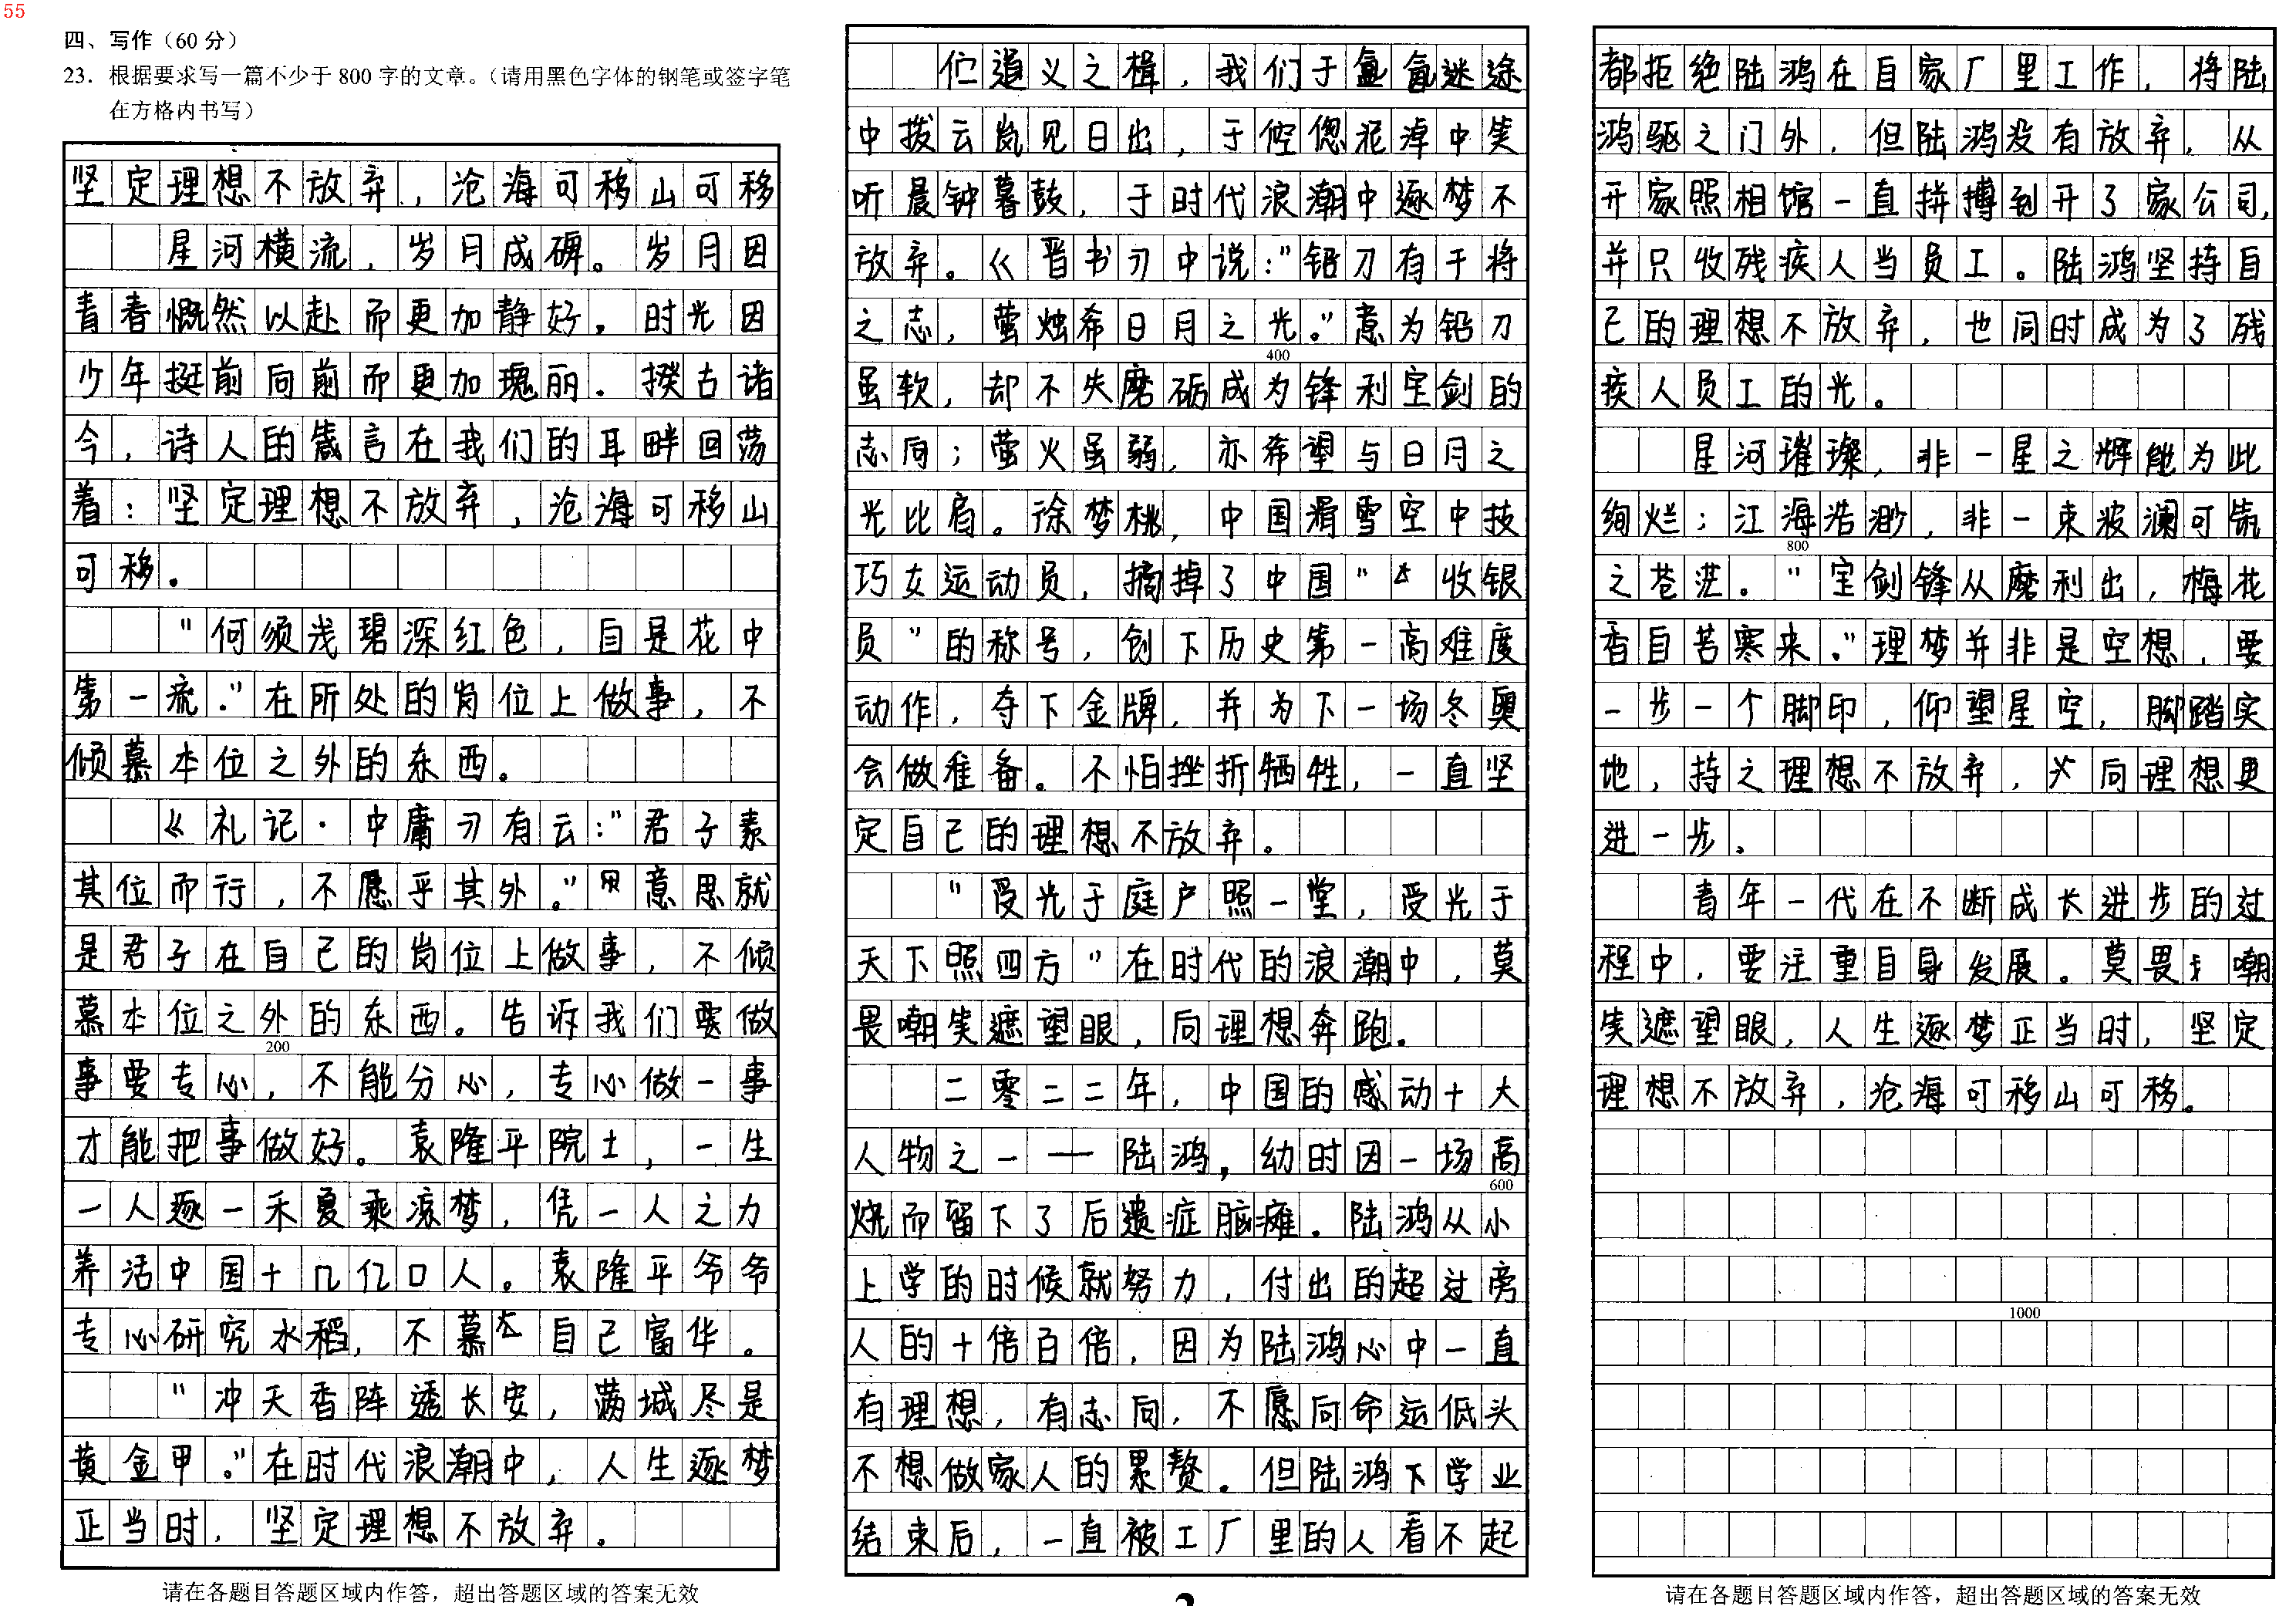 55
四、写作（60 分）
23．根据要求写一篇不少于 800 字的文章。（请用黑色字体的钢笔或签字笔
在方格内书写）
坚定理想不放弃，沧海可移山可移
星河横流，岁月成碑。岁月因
青春慨然以赴而更加静好，时光因
少年挺前向前而更加瑰丽．揆古诸
今，诗人的箴言在我们的耳畔回荡
着：坚定理想不放弃，沧海可移山
可移。
“何须浅碧深红色，自是花中
第一流．”在所处的岗位上做事，不
倾慕本位之外的东西。
《礼记·中庸》有云：“君子素
其位而行，不愿乎其外。”意思就
是君子在自己的岗位上做事，不倾
慕本位之外的东西。告诉我们要做
200
事要专心，不能分心，专心做一事
才能把事做好。袁隆平院士，一生
一人逐一禾夏乘凉梦，凭一人之力
养活中国十几亿口人。袁隆平爷爷
专心研究水稻，不慕自己富华。
“冲天香阵透长安，满城尽是
黄金甲。”在时代浪潮中，人生逐梦
正当时，坚定理想不放弃．
请在各题目答题区域内作答，超出答题区域的答案无效
伫道义之楫，我们于氤氲迷途
中拨云岚见日出，于倥偬泥淖中笑
听晨钟暮鼓，于时代浪潮中逐梦不
放弃。《晋书》中说：“铅刀有干将
之志，萤烛希日月之光。”意为铅刀
400
虽软，却不失磨砺成为锋利宝剑的
志向；萤火虽弱，亦希望与日月之
光比肩。徐梦桃，中国滑雪空中技
巧女运动员，摘掉了中国“收银
员”的称号，创下历史第一高难度
动作，夺下金牌，并为下一场冬奥
会做准备。不怕挫折牺牲，一直坚
定自己的理想不放弃。
“受光于庭户照一堂，受光于
天下照四方”在时代的浪潮中，莫
畏嘲笑遮望眼，向理想奔跑．
二零二二年，中国的感动十大
人物之一——陆鸿，幼时因一场高
600
烧而留下了后遗症脑瘫．陆鸿从小
上学的时候就努力，付出的超过旁
人的十倍百倍，因为陆鸿心中一直
有理想，有志向，不愿向命运低头
不想做家人的累赘．但陆鸿下学业
结束后，一直被工厂里的人看不起
2
都拒绝陆鸿在自家厂里工作，将陆
鸿驱之门外，但陆鸿没有放弃，从
开家照相馆一直拼搏到开了家公司，
并只收残疾人当员工。陆鸿坚持自
己的理想不放弃，也同时成为了残
疾人员工的光。
星河璀璨，非一星之辉能为此
绚烂；江海浩渺，非一束波澜可筑
800
之苍茫。“宝剑锋从磨利出，梅花
香自苦寒来．”理梦并非是空想，要
一步一个脚印，仰望星空，脚踏实
地，持之理想不放弃，向理想更
进一步．
青年一代在不断成长进步的过
程中，要注重自身发展。莫畏嘲
笑遮望眼，人生逐梦正当时，坚定
理想不放弃，沧海可移山可移。
1000
请在各题目答题区域内作答，超出答题区域的答案无效